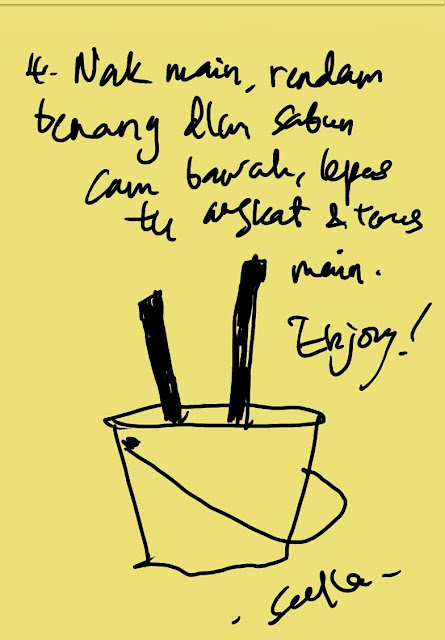 4. Nak main, rendam
benang dlm sabun
cam bawah, lepas
tu angkat & terus
main.
Enjoy!